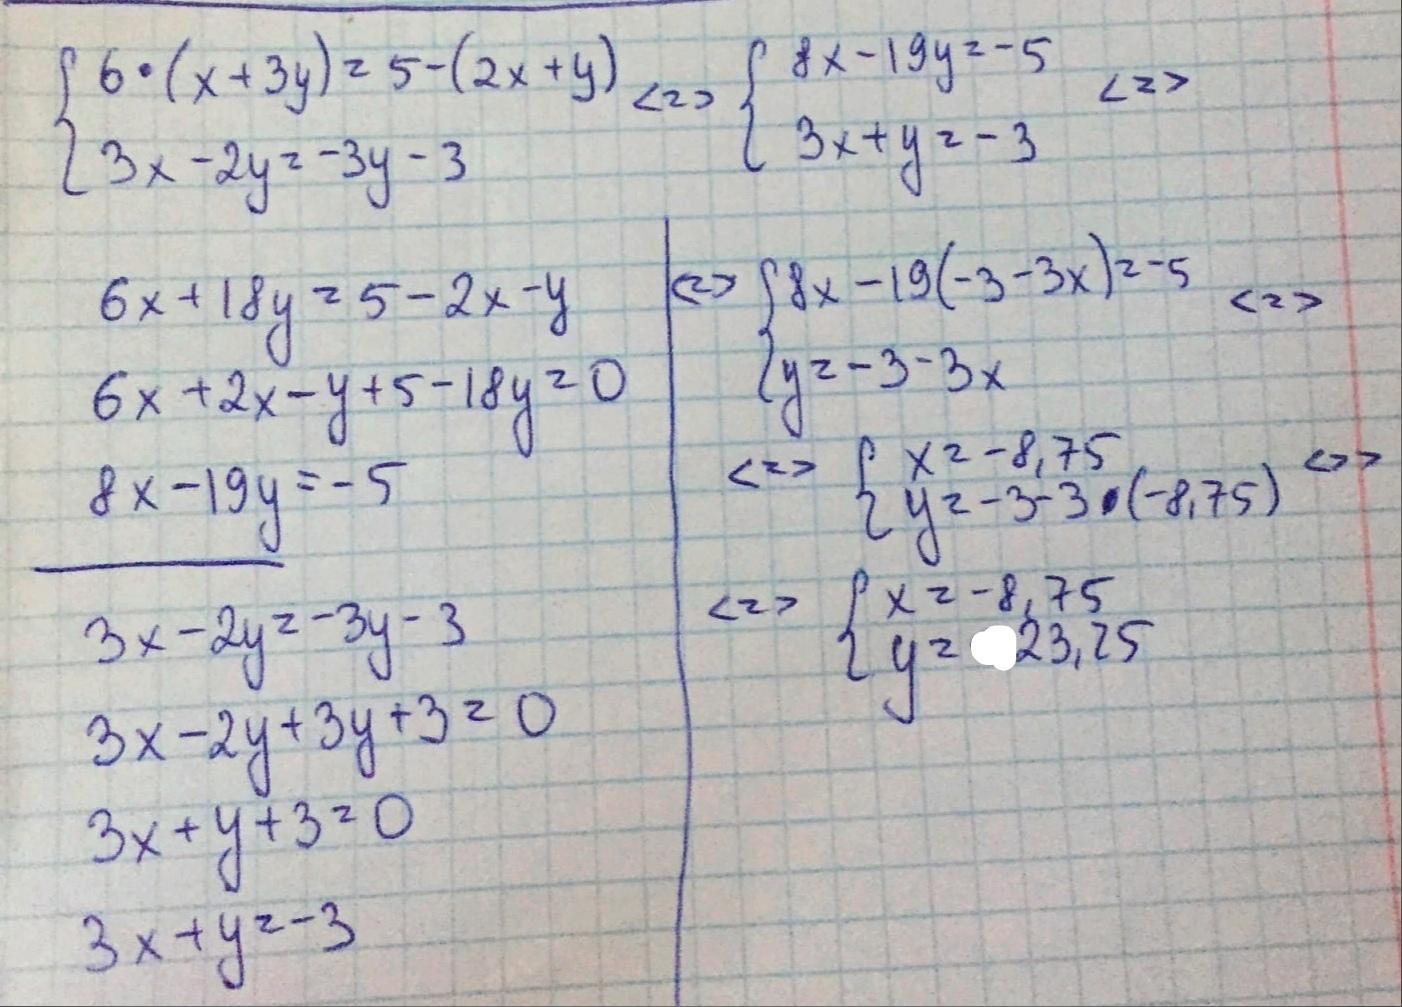 { 6•(x+3y)=5-(2x+y) <=> { 8x-19y=-5 <=>
3x-2y=-3y-3 3x+y=-3
6x+18y=5-2x-y
6x+2x-y+5-18y=0
8x-19y=-5
3x-2y=-3y-3
3x-2y+3y+3=0
3x+y+3=0
3x+y=-3
<=> { 8x-19(-3-3x)=-5 <=>
y=-3-3x
<=> { x=-8,75 <=>
y=-3-3•(-8,75)
<=> { x=-8,75
y= 23,25